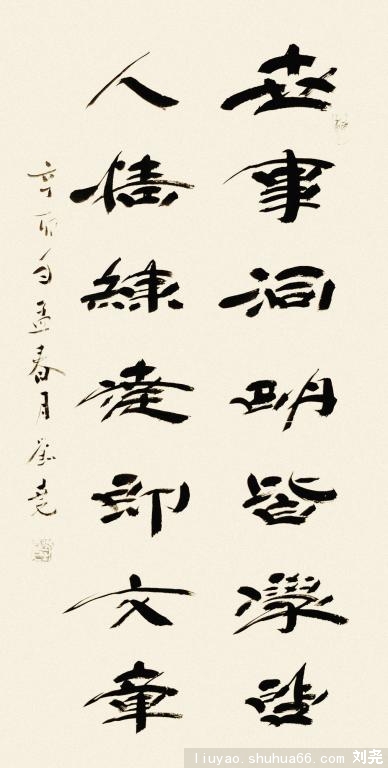 世事洞明皆學問
人情練達即文章
辛卯年孟春月劉堯
liuyao.shuhua66.com 刘尧